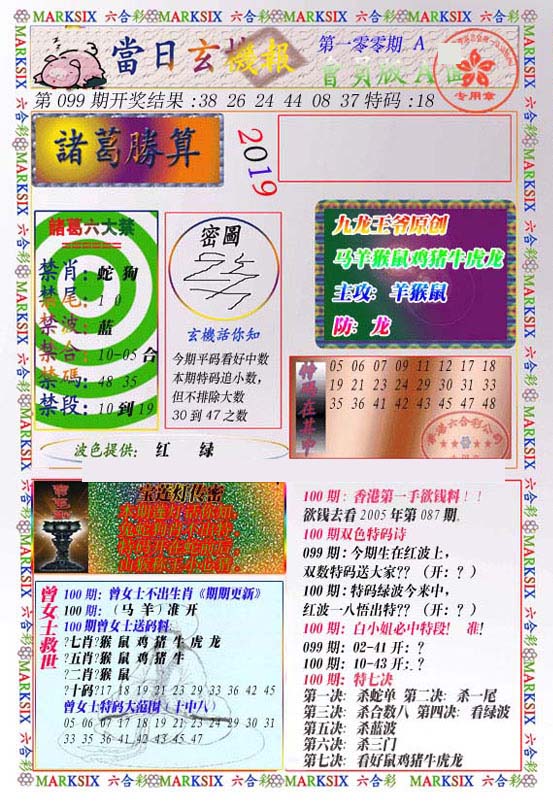 MARKSIX 六合彩 MARKSIX 六合彩 MARKSIX 六合彩 MARKSIX 六合彩 MARKSIX
當日玄機报
第一零零期 A
會員版
专用章
第 099 期开奖结果 :38 26 24 44 08 37 特码 :18
諸葛勝算
2019
諸葛六大禁
禁肖: 蛇 狗
禁尾: 1 0
禁波: 蓝
禁合: 10-05 合
禁碼: 48 35
禁段: 10 到 19
密圖
玄機話你知
今期平码看好中数
本期特码追小数,
但不排除大数
30 到 47 之数
九龙王爷原创
马羊猴鼠鸡猪牛虎龙
主攻: 羊猴鼠
防: 龙
05 06 07 09 11 12 17 18
19 21 23 24 29 30 31 33
35 36 41 42 43 45 47 48
波色提供: 红 绿
宝莲灯传密
曾女士救世
100 期: 曾女士不出生肖《期期更新》
100 期: (马 羊) 准 开
100 期曾女士送码料:
?七肖?猴 鼠 鸡 猪 牛 虎 龙
?五肖?猴 鼠 鸡 猪 牛
?二肖?猴 鼠
?十码?17 18 19 21 23 29 33 36 42 45
曾女士特码大范围 (十中八)
05 06 07 17 18 19 21 23 24 29 30 31
33 35 36 41 42 43 45 47
100 期: 香港第一手欲钱料！！
欲钱去看 2005 年第 087 期.
100 期双色特码诗
099 期: 今期生在红波上,
双数特码送大家?? (开: ? )
100 期: 特码绿波今来中,
红波一八悟出特?? (开: ? )
100 期: 白小姐必中特段! 准!
099 期: 02-41 开: ?
100 期: 10-43 开: ?
100 期: 特七决
第一决: 杀蛇单 第二决: 杀一尾
第三决: 杀合数八 第四决: 看绿波
第五决: 杀蓝波
第六决: 杀三门
第七决: 看好鼠鸡猪牛虎龙
MARKSIX 六合彩 MARKSIX 六合彩 MARKSIX 六合彩 MARKSIX 六合彩 MARKSIX